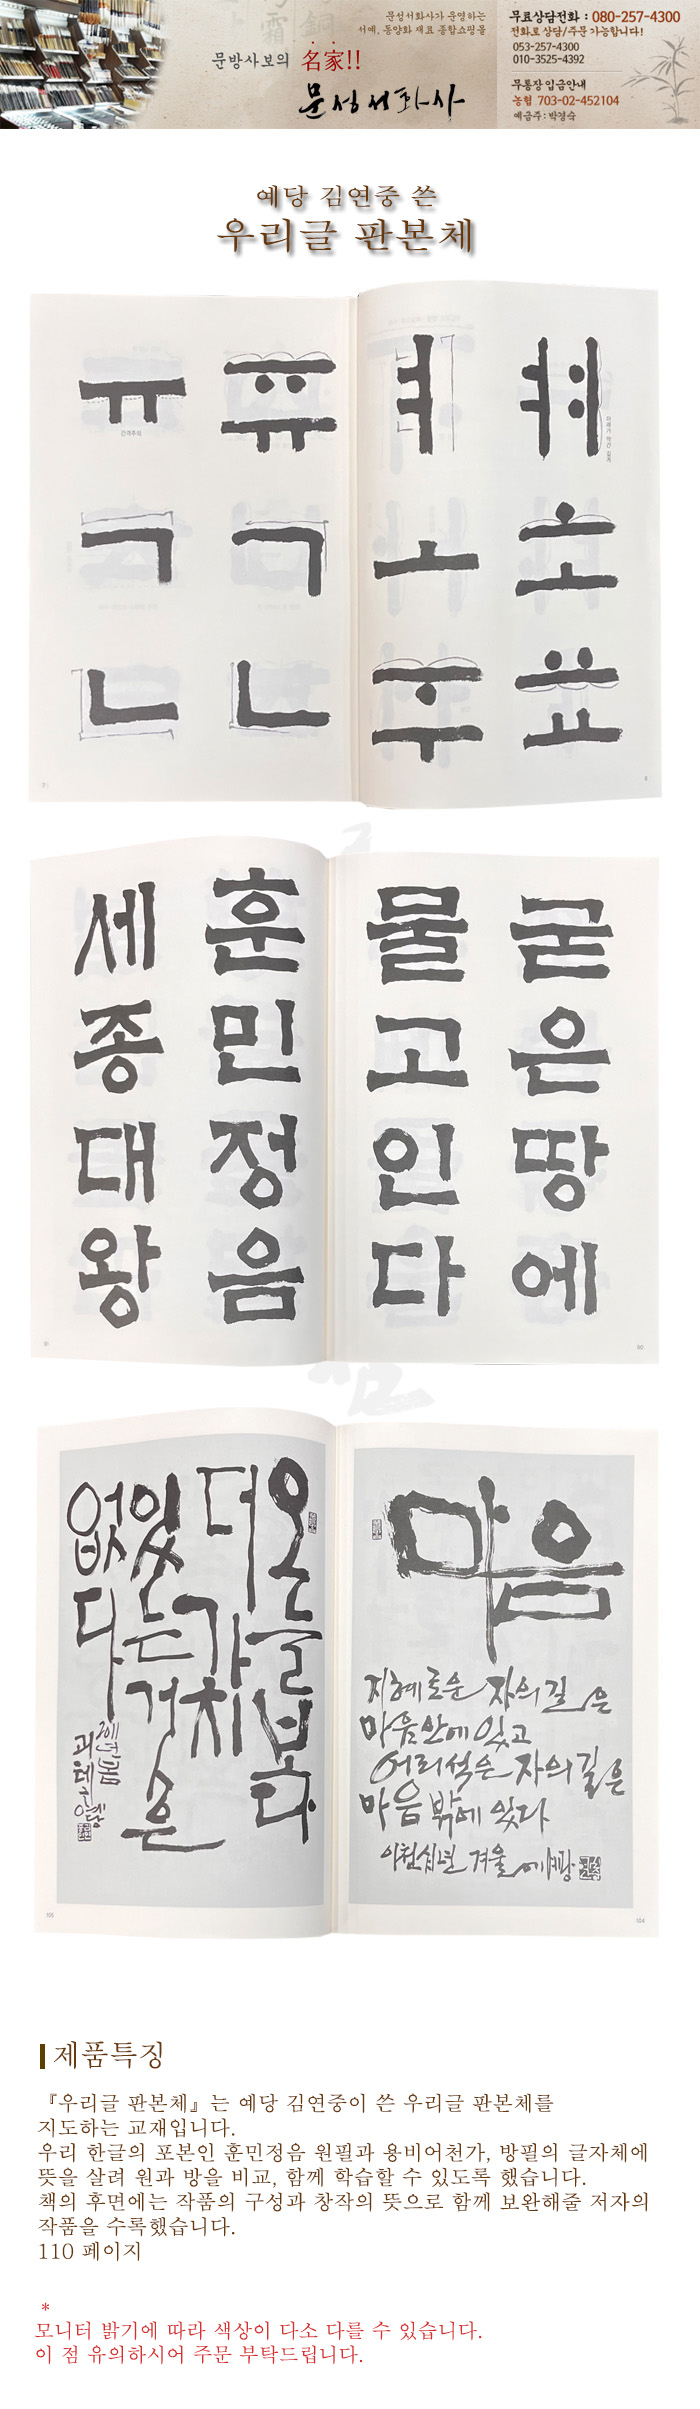 문성서화사가 운영하는
서예, 동양화 재료 종합쇼핑몰
문방사보의 名家!!
문성서화사
무료상담전화 : 080-257-4300
전화로 상담/주문 가능합니다!
053-257-4300
010-3525-4392
무통장 입금안내
농협 703-02-452104
예금주 : 박경숙
예당 김연중 쓴
우리글 판본체
ㅠ ㆌ ㅕ ㆎ
간격주의
아래가 약간 길게
ㄱ ㄱ ㅗ
ㄴ ㄴ
7
8
굳은땅에
물고인다
훈민정음
세종대왕
91
90
마음
지혜로운 자의 길은
마음안에 있고
어리석은 자의 길은
마음 밖에 있다
이천십년 겨울 예당
오늘보다
더 가치
있는 것은
없다
2011년 봄
괴테 글 예당
105
104
제품특징
『우리글 판본체』는 예당 김연중이 쓴 우리글 판본체를
지도하는 교재입니다.
우리 한글의 포본인 훈민정음 원필과 용비어천가, 방필의 글자체에
뜻을 살려 원과 방을 비교, 함께 학습할 수 있도록 했습니다.
책의 후면에는 작품의 구성과 창작의 뜻으로 함께 보완해줄 저자의
작품을 수록했습니다.
110 페이지
*
모니터 밝기에 따라 색상이 다소 다를 수 있습니다.
이 점 유의하시어 주문 부탁드립니다.